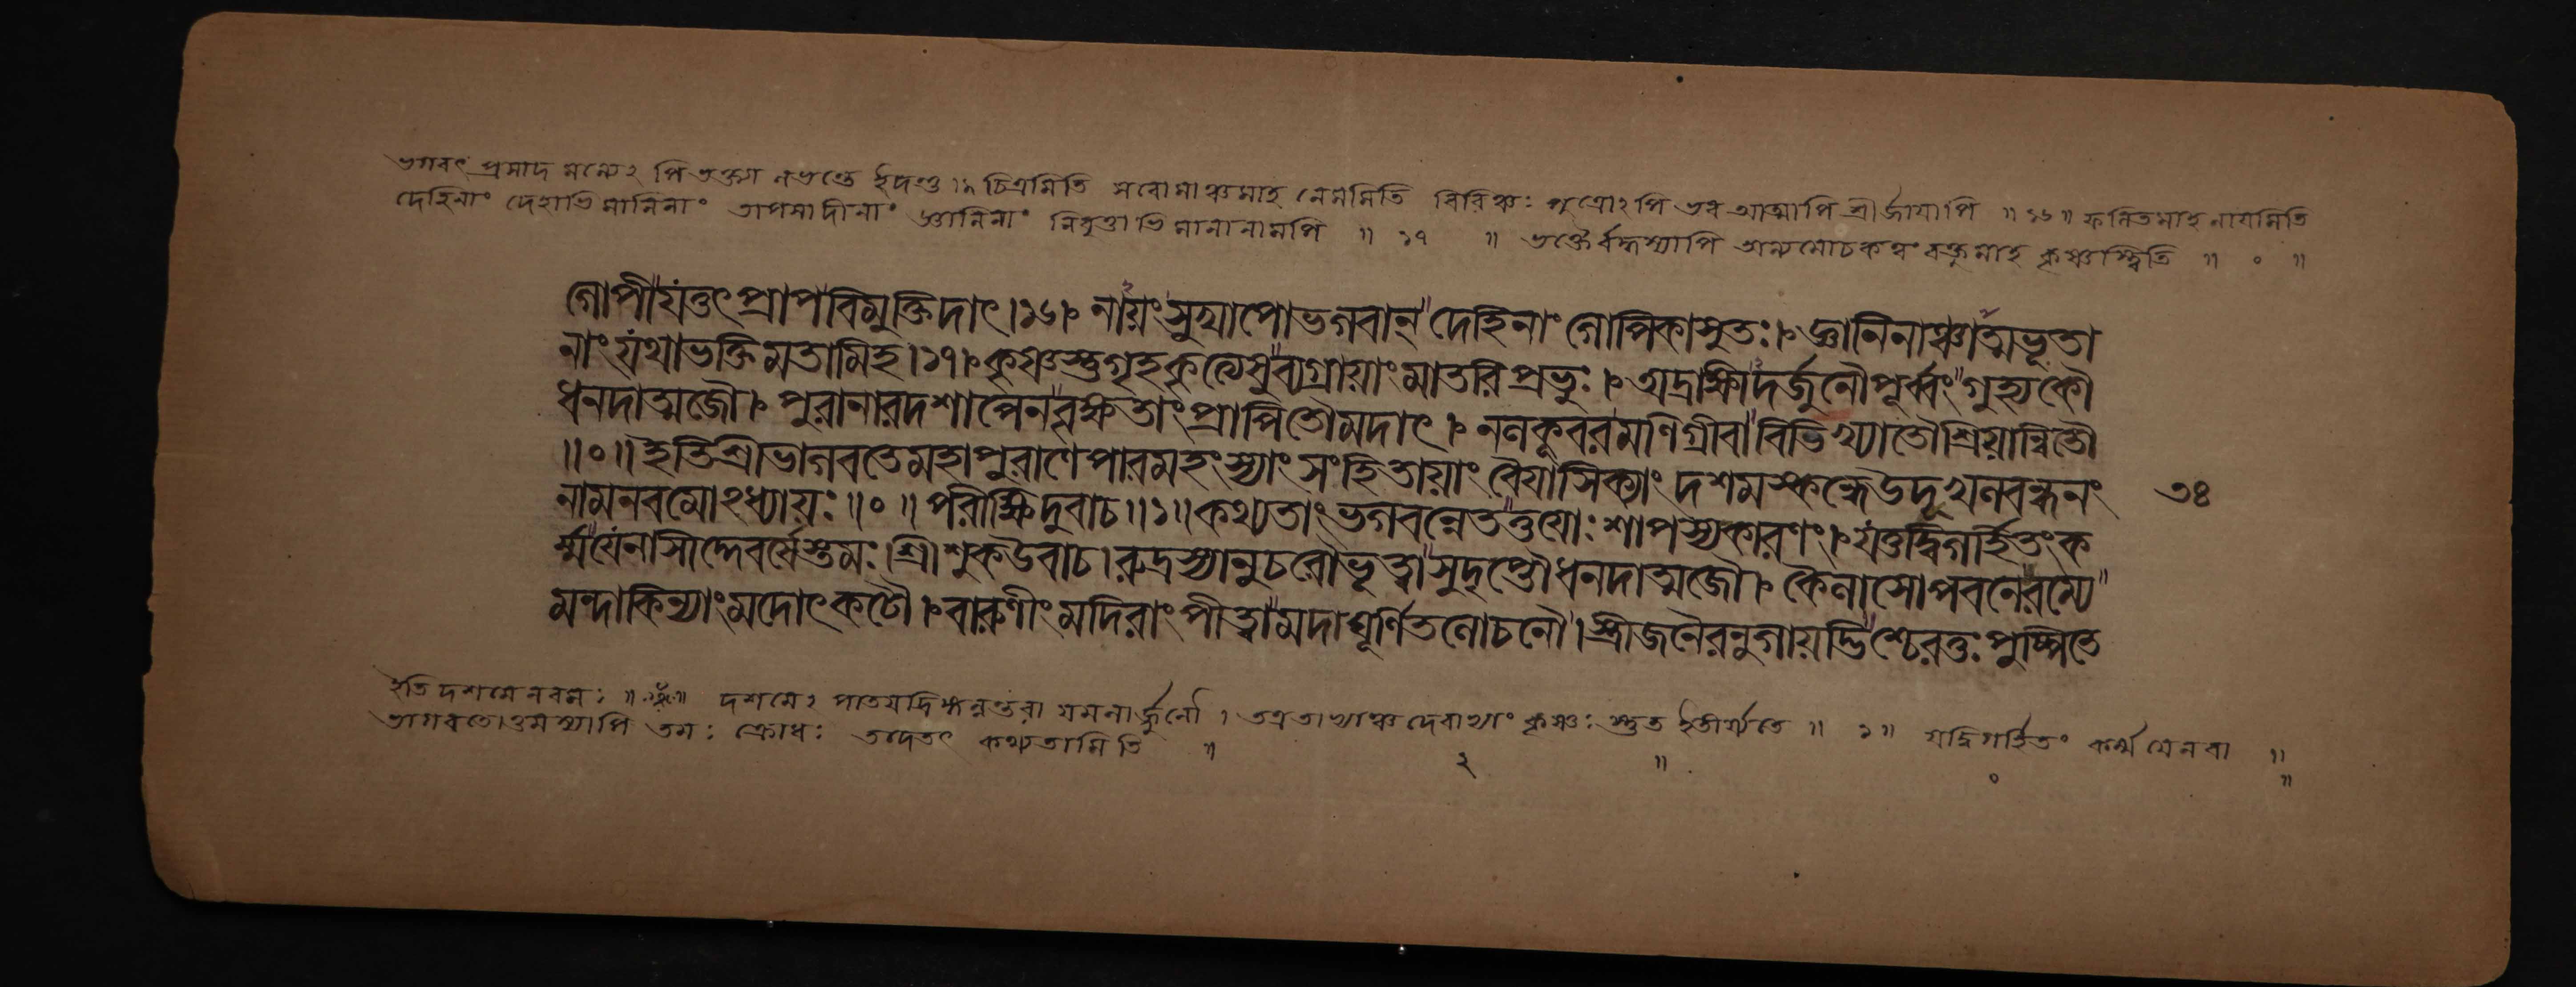 ভগবৎ প্রসাদ মন্যেঽ পি ভক্তা লভন্তে ইদন্তু চিত্রমিতি সরোমাঞ্চমাহ নেমমিতি বিরিঞ্চঃ পুত্রোঽপি ভব আত্মাপি শ্রীর্জায়াপি ॥ ১৬ ॥ ফলিতমাহ নায়মিতি
দেহিনাং দেহাভিমানিনাং তাপসাদীনাং জ্ঞানিনাং নিবৃত্তাভিমানানামপি ॥ ১৭ ॥ ভক্তৈর্বদ্ধস্যাপি অন্যমোচকত্বং বক্তুমাহ কৃষ্ণস্ত্বিতি ॥ ० ॥
গোপীযংত্তৎপ্রাপবিমুক্তিদাৎ।১৬। নায়ংসুখাপোভগবান্দেহিনাংগোপিকাসুতঃ। জ্ঞানিনাঞ্চাত্মভূতা
নাংযথাভক্তিমতামিহ।১৭। কৃষ্ণস্তুগৃহকৃত্যেষুব্যগ্রায়াংমাতরিপ্রভুঃ। অদ্রাক্ষীদর্জুনৌপূর্ব্বংগুহ্যকৌ
ধনদাত্মজৌ। পুরানারদশাপেনবৃক্ষতাংপ্রাপিতৌমদাৎ। নলকূবরমণিগ্রীবাবিতিখ্যাতৌশ্রিয়ান্বিতৌ
॥০॥ ইতিশ্রীভাগবতেমহাপুরাণেপারমহংস্যাংসংহিতায়াংবৈয়াসিক্যাংদশমস্কন্ধেউদূখলবন্ধনং ৩৪
নামনবমোঽধ্যায়ঃ॥০॥পরীক্ষিদুবাচ॥১॥কথ্যতাংভগবন্নেতত্তয়োঃশাপস্যকারণং। যত্তদ্বিগর্হিতংক
র্ম্মযেনাসীদ্দেবর্ষেস্তমঃ।শ্রীশুকউবাচ।রুদ্রস্যানুচরৌভূত্বাসুদৃপ্তৌধনদাত্মজৌ। কৈলাসোপবনেরম্যে
মন্দাকিন্যাংমদোৎকটৌ। বারুণীংমদিরাংপীত্বামদাঘূর্ণিতলোচনৌ।স্ত্রীজনৈরনুগায়দ্ভিশ্চেরতুঃপুষ্পিতে
ইতি দশমে নবমঃ ॥ দশমেঽ পাতয়দ্রিঙ্গন্নন্তরা যমলার্জুনৌ । তত্রতাভ্যাঞ্চ দেবাভ্যাং কৃষ্ণঃ স্তুত ইতীর্য্যতে ॥ ১ ॥ যদ্বিগর্হিতং কর্ম্ম যেন বা ॥
ভাগবতোত্তমস্যাপি তমঃ ক্রোধঃ তদেতৎ কথ্যতামিতি ॥ ২ ॥ ० ॥